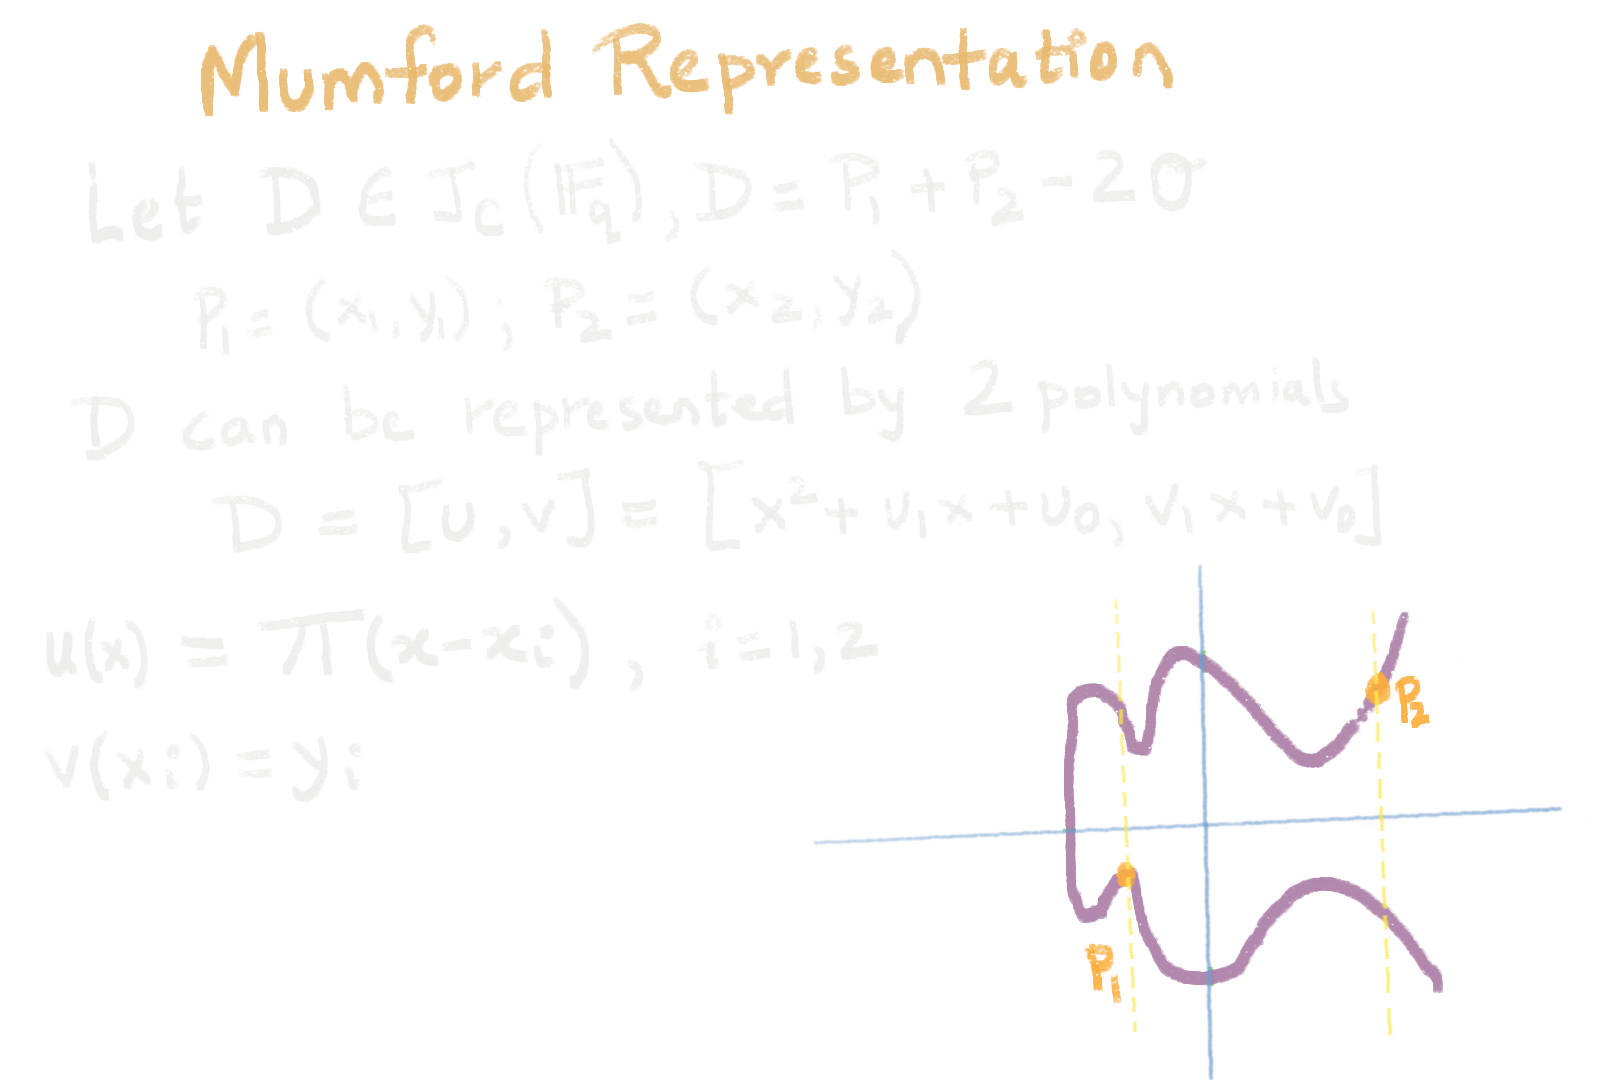 Mumford Representation
Let D ∈ J_C(𝔽_q), D = P_1 + P_2 - 2O
P_1 = (x_1, y_1) ; P_2 = (x_2, y_2)
D can be represented by 2 polynomials
D = [u, v] = [x² + u_1x + u_0, v_1x + v_0]
u(x) = π(x - x_i), i = 1, 2
v(x_i) = y_i
P_2
P_1